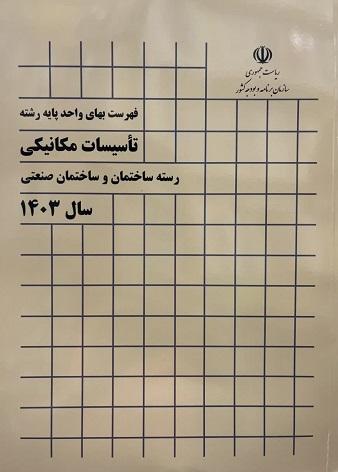 ریاست جمهوری
سازمان برنامه و بودجه کشور
فهرست بهای واحد پایه رشته
تأسیسات مکانیکی
رسته ساختمان و ساختمان صنعتی
سال ۱۴۰۳